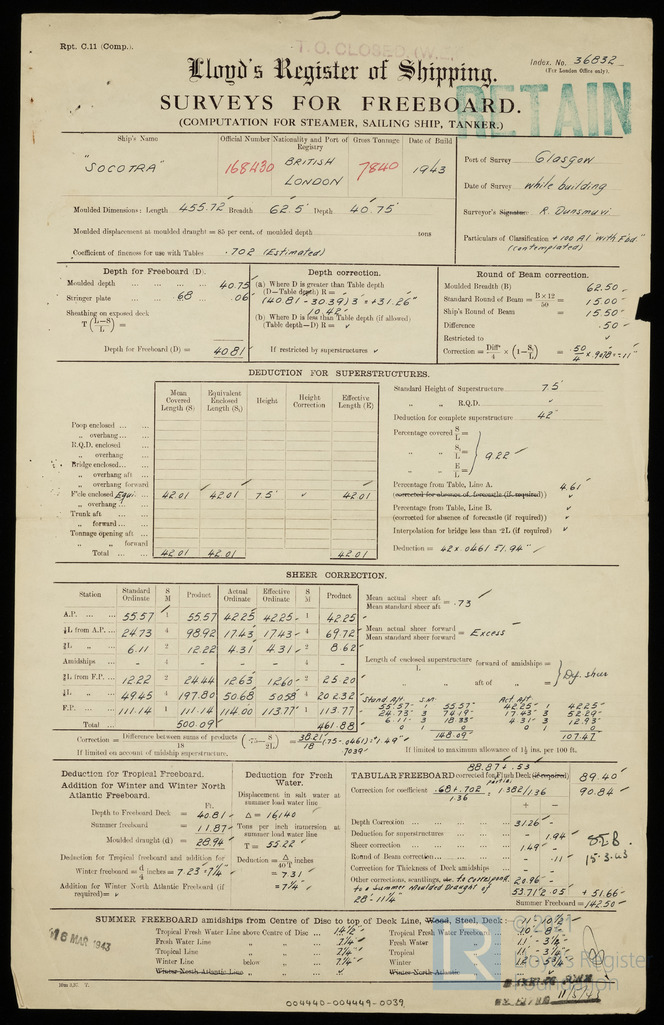 Rpt. C.11 (Comp.).
T. O. CLOSED.
Index. No. 36832
(For London Office only).
Lloyd's Register of Shipping.
RETAIN
SURVEYS FOR FREEBOARD.
(COMPUTATION FOR STEAMER, SAILING SHIP, TANKER.)
Ship's Name Official Number Nationality and Port of Registry Gross Tonnage Date of Build
"SOCOTRA" 168430 BRITISH LONDON 7840 1943
Port of Survey Glasgow
Date of Survey While building
Surveyor's Signature R. Dunsmuir
Particulars of Classification +100 A1 With F'bd (contemplated)
Moulded Dimensions: Length 455.72 Breadth 62.5 Depth 40.75
Moulded displacement at moulded draught = 85 per cent. of moulded depth tons
Coefficient of fineness for use with Tables .702 (Estimated)
Depth for Freeboard (D).
Moulded depth ... 40.75
Stringer plate ... .68 .06
Sheathing on exposed deck
T (L–S / L) =
Depth for Freeboard (D) = 40.81
Depth correction.
(a) Where D is greater than Table depth
(D—Table depth) R =
(40.81 - 30.39) 3 = +31.26"
10.42
(b) Where D is less than Table depth (if allowed)
(Table depth—D) R =
If restricted by superstructures
Round of Beam correction.
Moulded Breadth (B) 62.50
Standard Round of Beam = B×12 / 50 = 15.00
Ship's Round of Beam = 15.50
Difference .50
Restricted to
Correction = Diff / 4 × (1 – S₁ / L) = .50 / 4 × .9078 = -.11"
DEDUCTION FOR SUPERSTRUCTURES.
Mean Covered Length (S) Equivalent Enclosed Length (S₁) Height Height Correction Effective Length (E)
Poop enclosed
" overhang
R.Q.D. enclosed
" overhang
Bridge enclosed
" overhang aft
" overhang forward
F'cle enclosed Equi. 42.01 42.01 7.5' 42.01
" overhang
Trunk aft
" forward
Tonnage opening aft
" " forward
Total 42.01 42.01 42.01
Standard Height of Superstructure 7.5'
" " R.Q.D.
Deduction for complete superstructure 42"
Percentage covered S / L =
" " S₁ / L = 9.22
" " E / L =
Percentage from Table, Line A. 4.61
(corrected for absence of forecastle (if required))
Percentage from Table, Line B.
(corrected for absence of forecastle (if required))
Interpolation for bridge less than ·2L (if required)
Deduction = 42 × .0461 = 1.94"
SHEER CORRECTION.
Station Standard Ordinate S M Product Actual Ordinate Effective Ordinate S M Product
A.P. 55.57 1 55.57 42.25 42.25 1 42.25
⅙L from A.P. 24.73 4 98.92 17.43 17.43 4 69.72
⅓L " 6.11 2 12.22 4.31 4.31 2 8.62
Amidships - 4 - - - 4 -
⅓L from F.P. 12.22 2 24.44 12.63 12.60 2 25.20
⅙L " 49.45 4 197.80 50.68 50.58 4 202.32
F.P. 111.14 1 111.14 114.00 113.77 1 113.77
Total 500.09 461.88
Mean actual sheer aft / Mean standard sheer aft = .73
Mean actual sheer forward / Mean standard sheer forward = Excess
Length of enclosed superstructure / L forward of amidships =
" " aft of " = Def. sheer
Stand. Aft. S.M. Act. Aft.
55.57 1 55.57 42.25 1 42.25
24.73 3 74.19 17.43 3 52.29
6.11 3 18.33 4.31 3 12.93
0 1 0 0 1 0
148.09 107.47
Correction = Difference between sums of products / 18 (·75 – S / 2L) = 38.21 / 18 (.75 - .0461) = 1.49"
.7039
If limited on account of midship superstructure.
If limited to maximum allowance of 1½ ins. per 100 ft.
Deduction for Tropical Freeboard.
Addition for Winter and Winter North Atlantic Freeboard.
Ft.
Depth to Freeboard Deck = 40.81
Summer freeboard = 11.87
Moulded draught (d) = 28.94
Deduction for Tropical freeboard and addition for
Winter freeboard = d / 4 inches = 7.23 = 7¼"
Addition for Winter North Atlantic Freeboard (if required) =
Deduction for Fresh Water.
Displacement in salt water at summer load water line
Δ = 16140
Tons per inch immersion at summer load water line
T = 55.22
Deduction = Δ / 40T inches
= 7.31
= 7¼"
88.87 + .53
TABULAR FREEBOARD corrected for Flush Deck (if required) 89.40
Correction for coefficient .68 + .702 / 1.36 = 1.382 / 1.36 90.84
+ –
Depth Correction 31.26
Deduction for superstructures 1.94
Sheer correction 1.49
Round of Beam correction .11
Correction for Thickness of Deck amidships
Other corrections, scantlings, etc. to correspond 20.96
to a Summer Moulded Draught of 28'-11¼"
53.71 2.05 + 51.66
Summer Freeboard = 142.50
15.3.43
SUMMER FREEBOARD amidships from Centre of Disc to top of Deck Line, Wood, Steel, Deck: 11'-10½"
Tropical Fresh Water Line above Centre of Disc 14½" Tropical Fresh Water Freeboard 10'-8"
Fresh Water Line " " 7¼" Fresh Water " 11'-3¼"
Tropical Line " " 7¼" Tropical " 11'-3¼"
Winter Line below " 7¼" Winter " 12'-5¾"
Winter North Atlantic Line " " Winter North Atlantic "
16 MAR 1943
© 2021
Lloyd's Register
Foundation
LR
004440-004449-0039